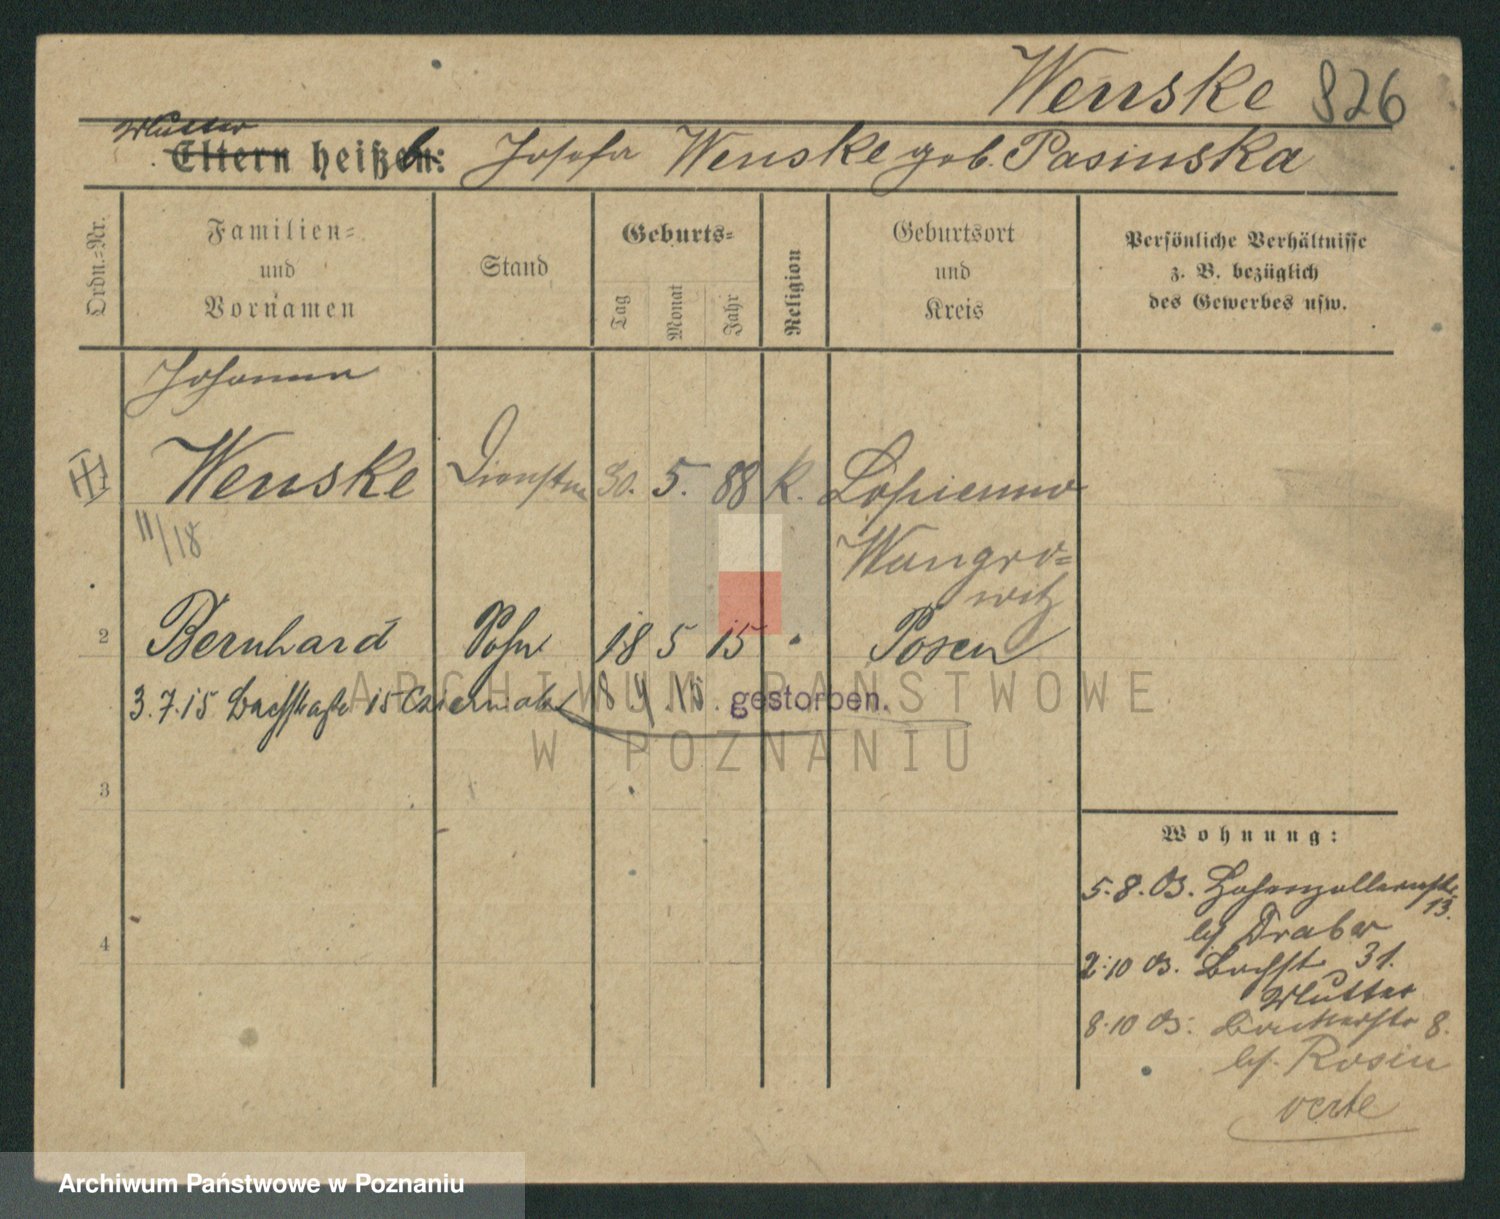 Wenske 826
Mutter
Eltern heißen: Josefa Wenske geb. Pasinska
Ordn.=Nr.
Familien=
und
Vornamen
Stand
Geburts=
Tag
Monat
Jahr
Religion
Geburtsort
und
Kreis
Persönliche Verhältnisse
z. B. bezüglich
des Gewerbes usw.
Johanna
Wenske 30. 5. 88 k. Lopienno
11/18
Wongro=
witz
2 Bernhard Sohn 18 5 15 " Posen
3.7.15 15 gestorben.
3
4
Wohnung:
5.8.03. Hohenzollernstr.
13.
bei Draber
2.10 03. Bachst 31.
Mutter
8.10 03. 8.
bei Rosin
verte
ARCHIWUM PAŃSTWOWE
W POZNANIU
Archiwum Państwowe w Poznaniu